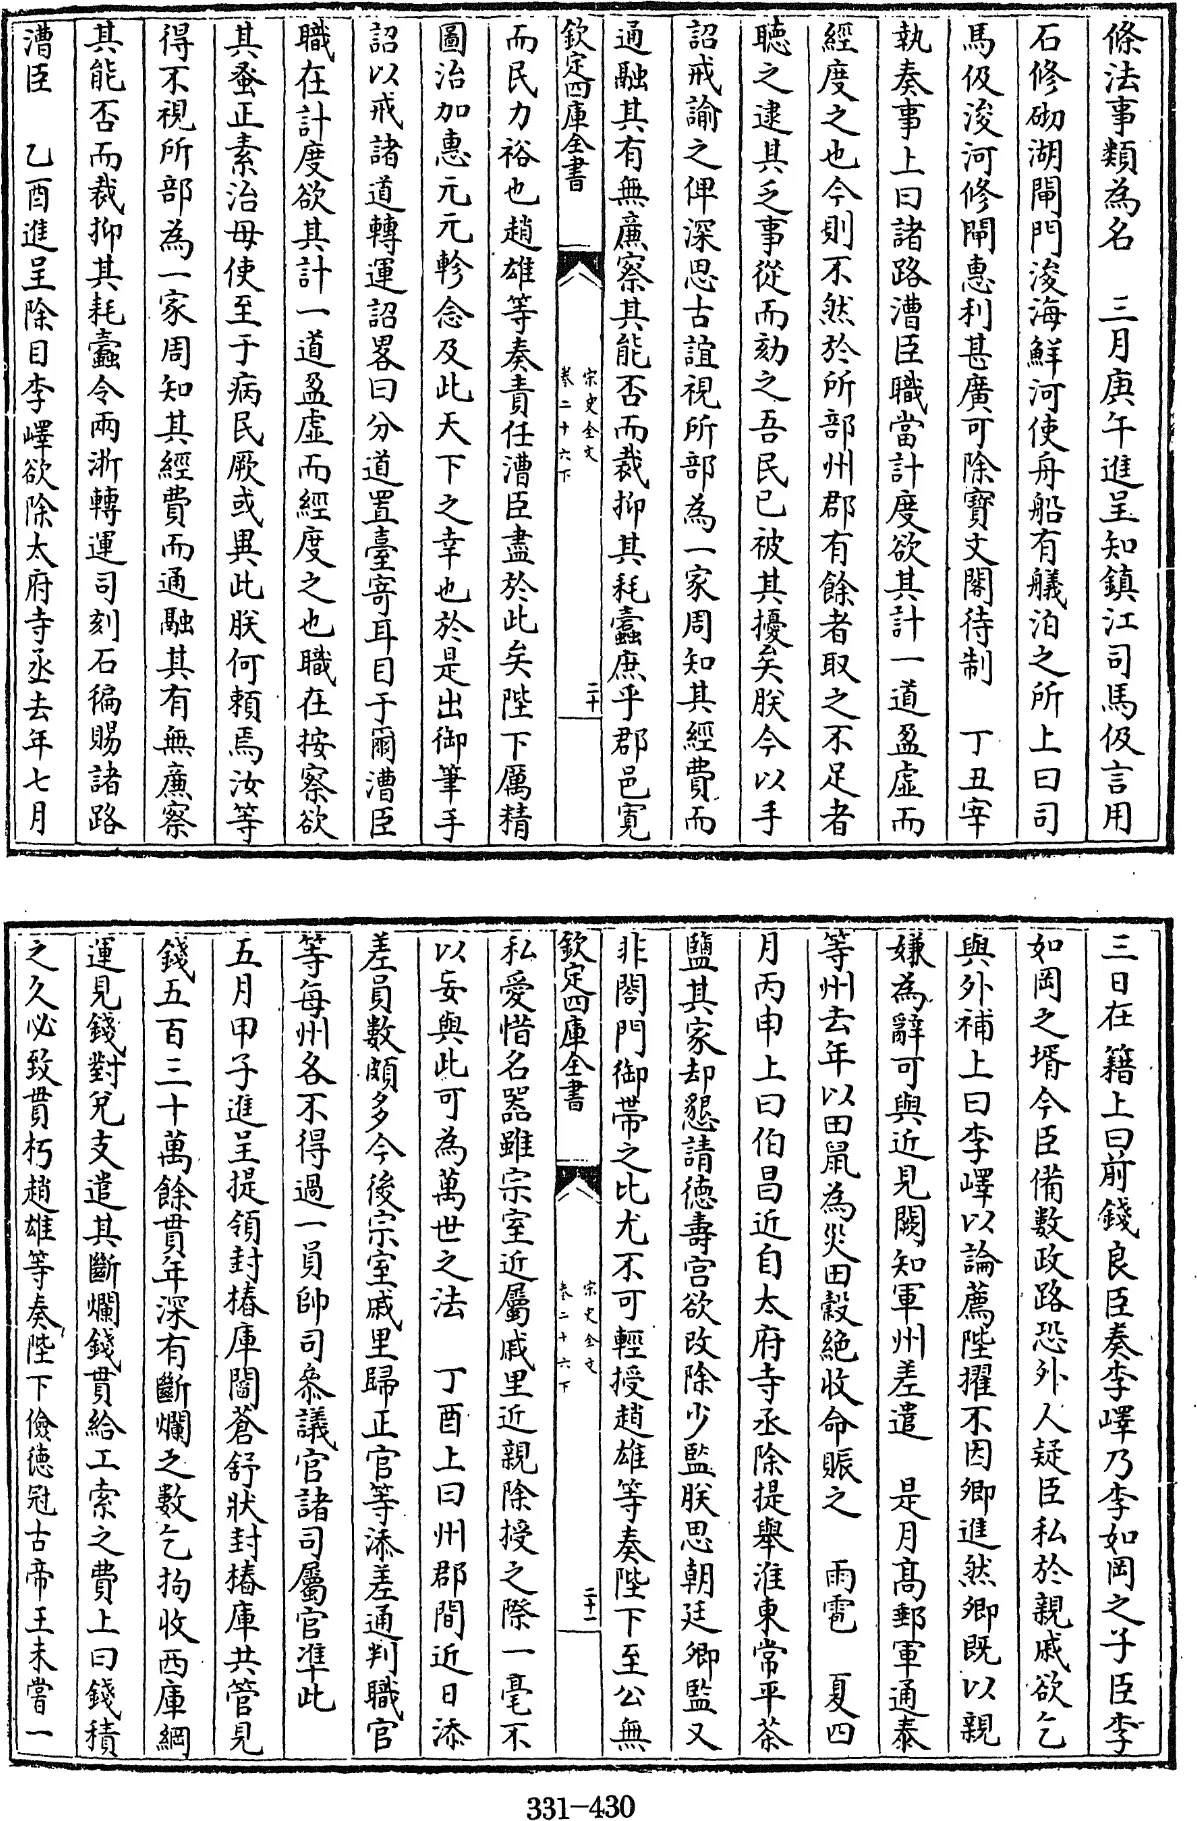 條法事類為名　三月庚午進呈知鎮江司馬伋言用
石修砌湖閘門浚海鮮河使舟船有艤泊之所上曰司
馬伋浚河修閘惠利甚廣可除寶文閣待制　丁丑宰
執奏事上曰諸路漕臣職當計度欲其計一道盈虛而
經度之也今則不然於所部州郡有餘者取之不足者
聽之逮其乏事從而劾之吾民已被其擾矣朕今以手
詔戒諭之俾深思古誼視所部為一家周知其經費而
通融其有無廉察其能否而裁抑其耗蠹庶乎郡邑寛
欽定四庫全書
宋史全文
卷二十六下
二十
而民力裕也趙雄等奏責任漕臣盡於此矣陛下厲精
圖治加惠元元軫念及此天下之幸也於是出御筆手
詔以戒諸道轉運詔畧曰分道置臺寄耳目于爾漕臣
職在計度欲其計一道盈虛而經度之也職在按察欲
其蚤正素治毋使至于病民厥或異此朕何頼焉汝等
得不視所部為一家周知其經費而通融其有無廉察
其能否而裁抑其耗蠹令兩浙轉運司刻石徧賜諸路
漕臣　乙酉進呈除目李嶧欲除太府寺丞去年七月
三日在籍上曰前錢良臣奏李嶧乃李如岡之子臣李
如岡之壻今臣備數政路恐外人疑臣私於親戚欲乞
與外補上曰李嶧以論薦陛擢不因卿進然卿既以親
嫌為辭可與近見闕知軍州差遣　是月髙郵軍通泰
等州去年以田鼠為災田穀絶收命賑之　雨雹　夏四
月丙申上曰伯昌近自太府寺丞除提舉淮東常平茶
鹽其家却懇請德壽宫欲改除少監朕思朝廷卿監又
非閤門御帶之比尤不可輕授趙雄等奏陛下至公無
欽定四庫全書
宋史全文
卷二十六下
二十一
私愛惜名器雖宗室近屬戚里近親除授之際一毫不
以妄與此可為萬世之法　丁酉上曰州郡間近日添
差員數頗多今後宗室戚里歸正官等添差通判職官
等每州各不得過一員帥司叅議官諸司屬官準此
五月甲子進呈提領封樁庫閻蒼舒狀封樁庫共管見
錢五百三十萬餘貫年深有斷爛之數乞拘收西庫綱
運見錢對兌支遣其斷爛錢貫給工索之費上曰錢積
之久必致貫朽趙雄等奏陛下儉德冠古帝王未嘗一
331-430